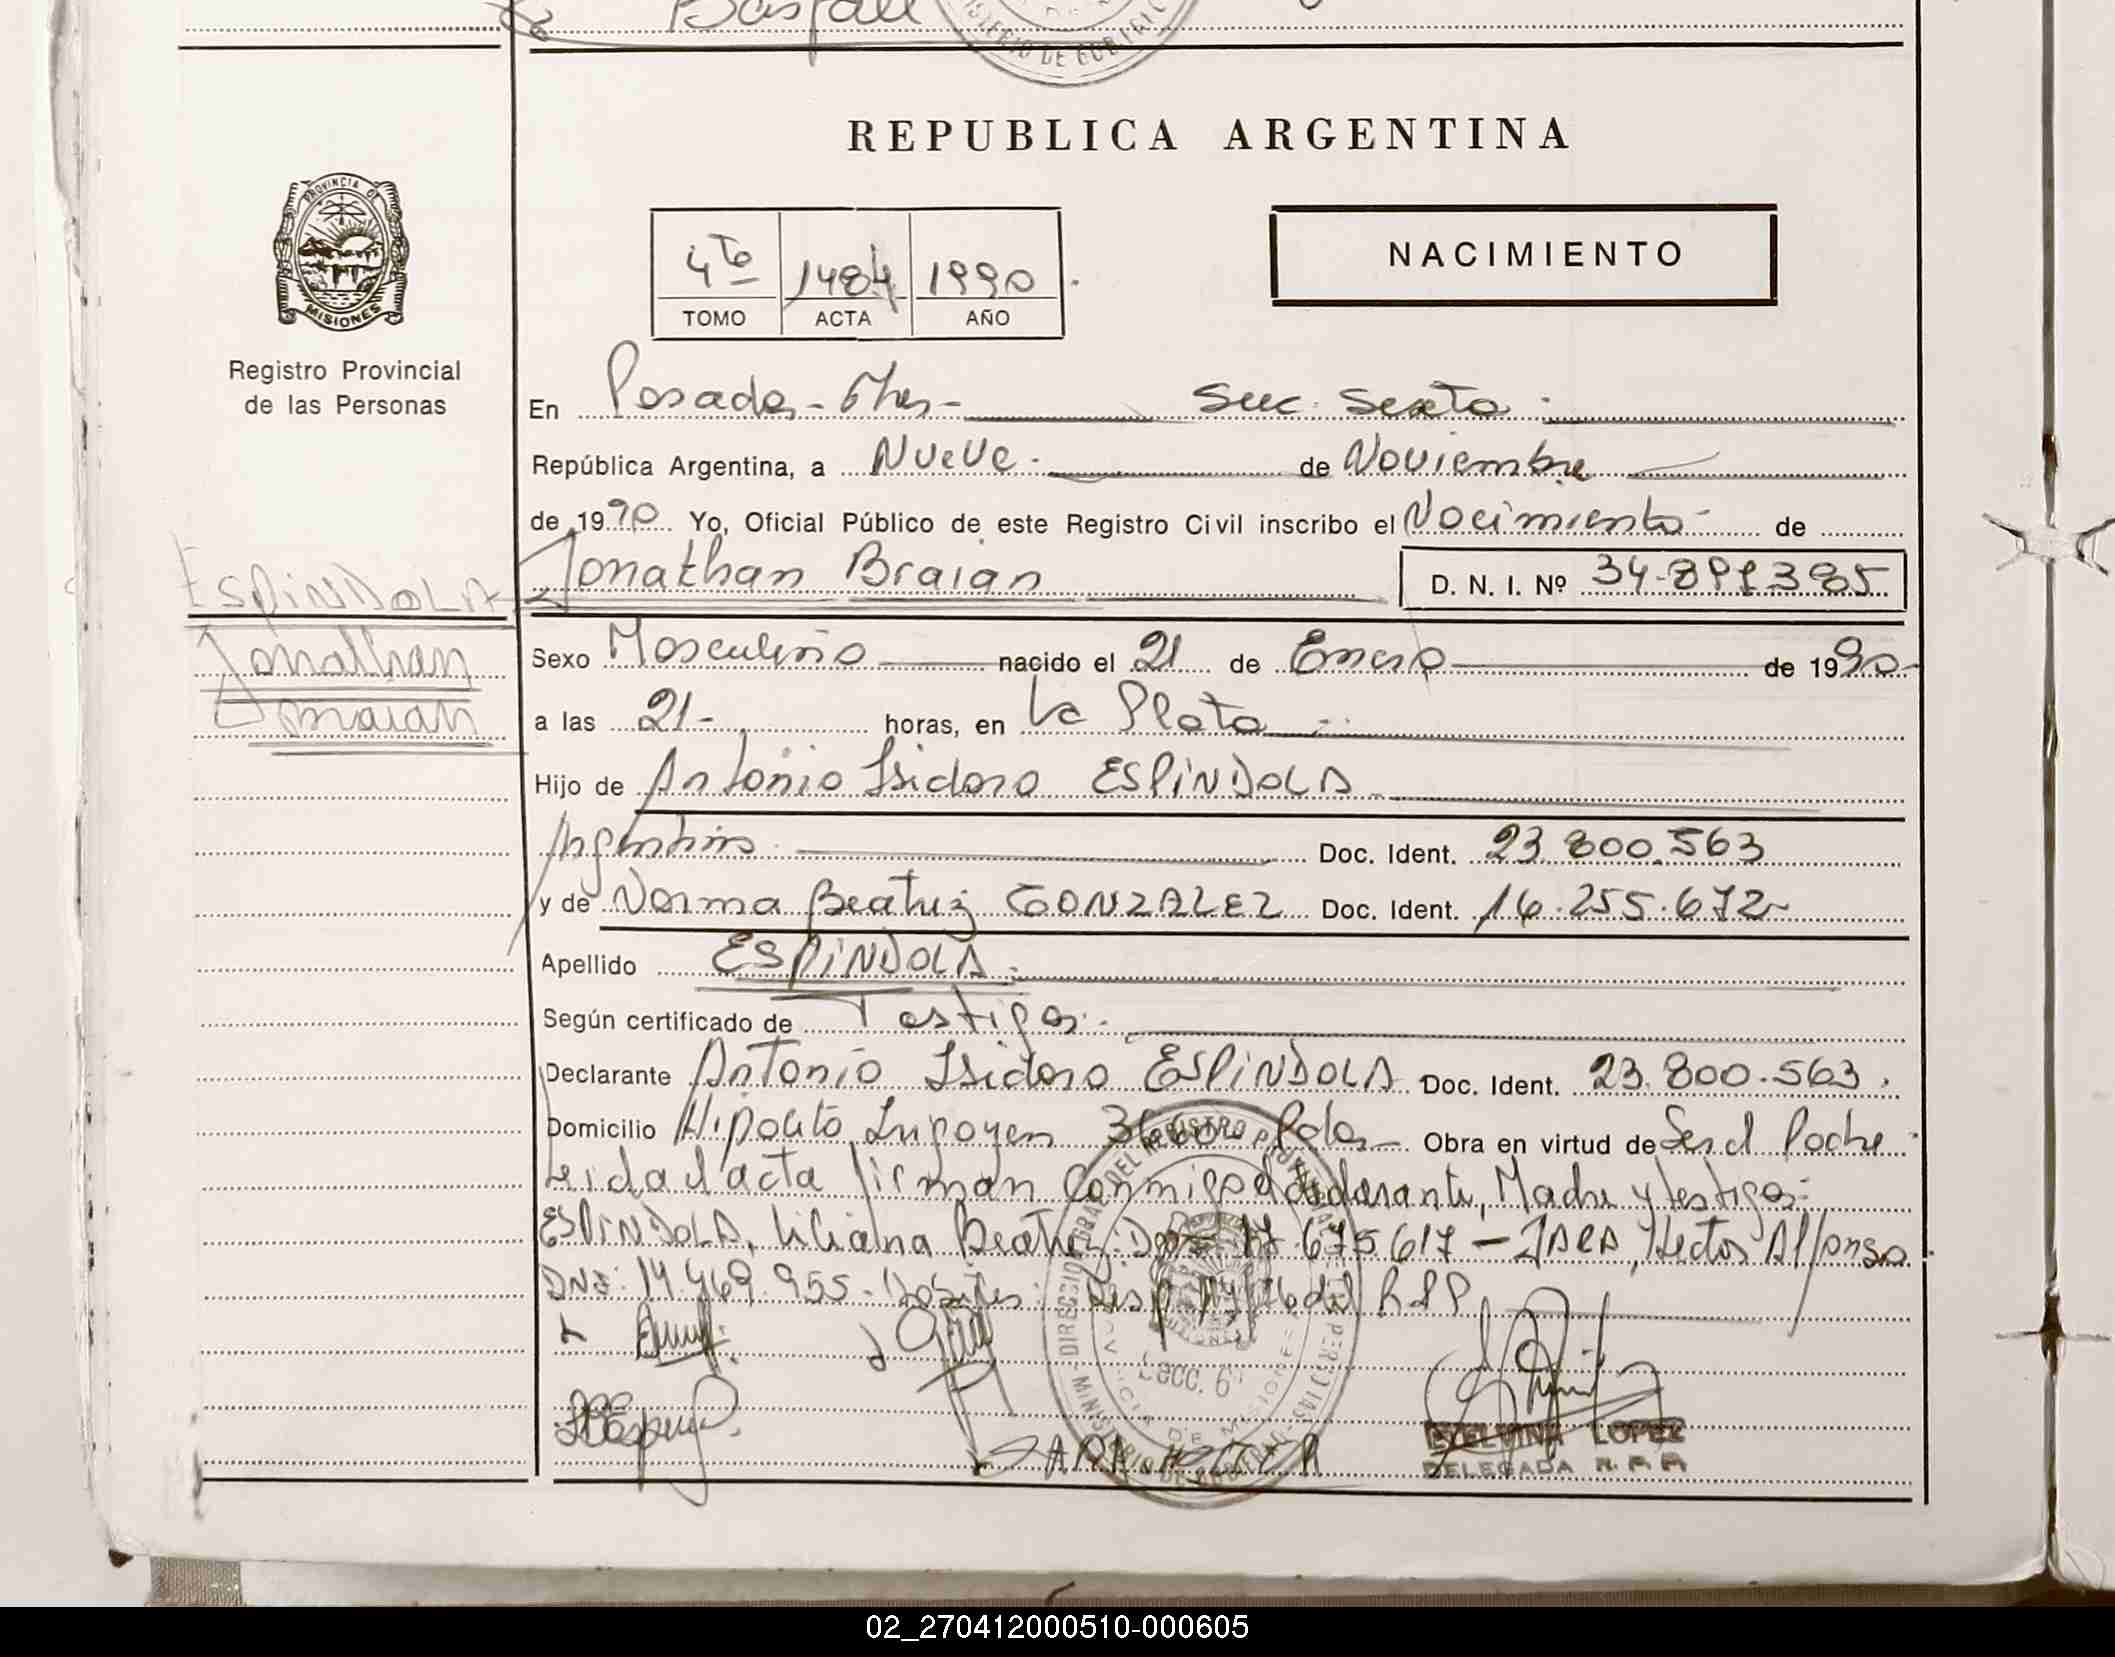 Basfall
MINISTERIO DE GOBIER
REPUBLICA ARGENTINA
PROVINCIA DE
MISIONES
Registro Provincial
de las Personas
NACIMIENTO
4to 1484 1990
TOMO ACTA AÑO
En Posadas - Mnes - Secc. Sexta
República Argentina, a Nueve de Noviembre
de 1990 Yo, Oficial Público de este Registro Civil inscribo el Nacimiento de
Jonathan Braian D. N. I. Nº 34.891.385
ESPINDOLA
Jonathan
Braian
Sexo Masculino nacido el 21 de Enero de 1990-
a las 21- horas, en La Plata
Hijo de Antonio Isidoro ESPINDOLA
Argentino Doc. Ident. 23.800.563
y de Norma Beatriz GONZALEZ Doc. Ident. 16.255.672
Apellido ESPINDOLA
Según certificado de Testigos
Declarante Antonio Isidoro ESPINDOLA Doc. Ident. 23.800.563
Domicilio Hipolito Irigoyen Pdas - Obra en virtud de Ser el Padre
Leida el acta firman conmigo el declarante, Madre y testigos:
ESPINDOLA, Liliana Beatriz: 17.675.617 - JARA, Hector Alfonso
DNI: 14.469.955 - del RPP
Secc. 6
JARA HECTOR
ETELVINA LOPEZ
DELEGADA R.P.P.
02_270412000510-000605